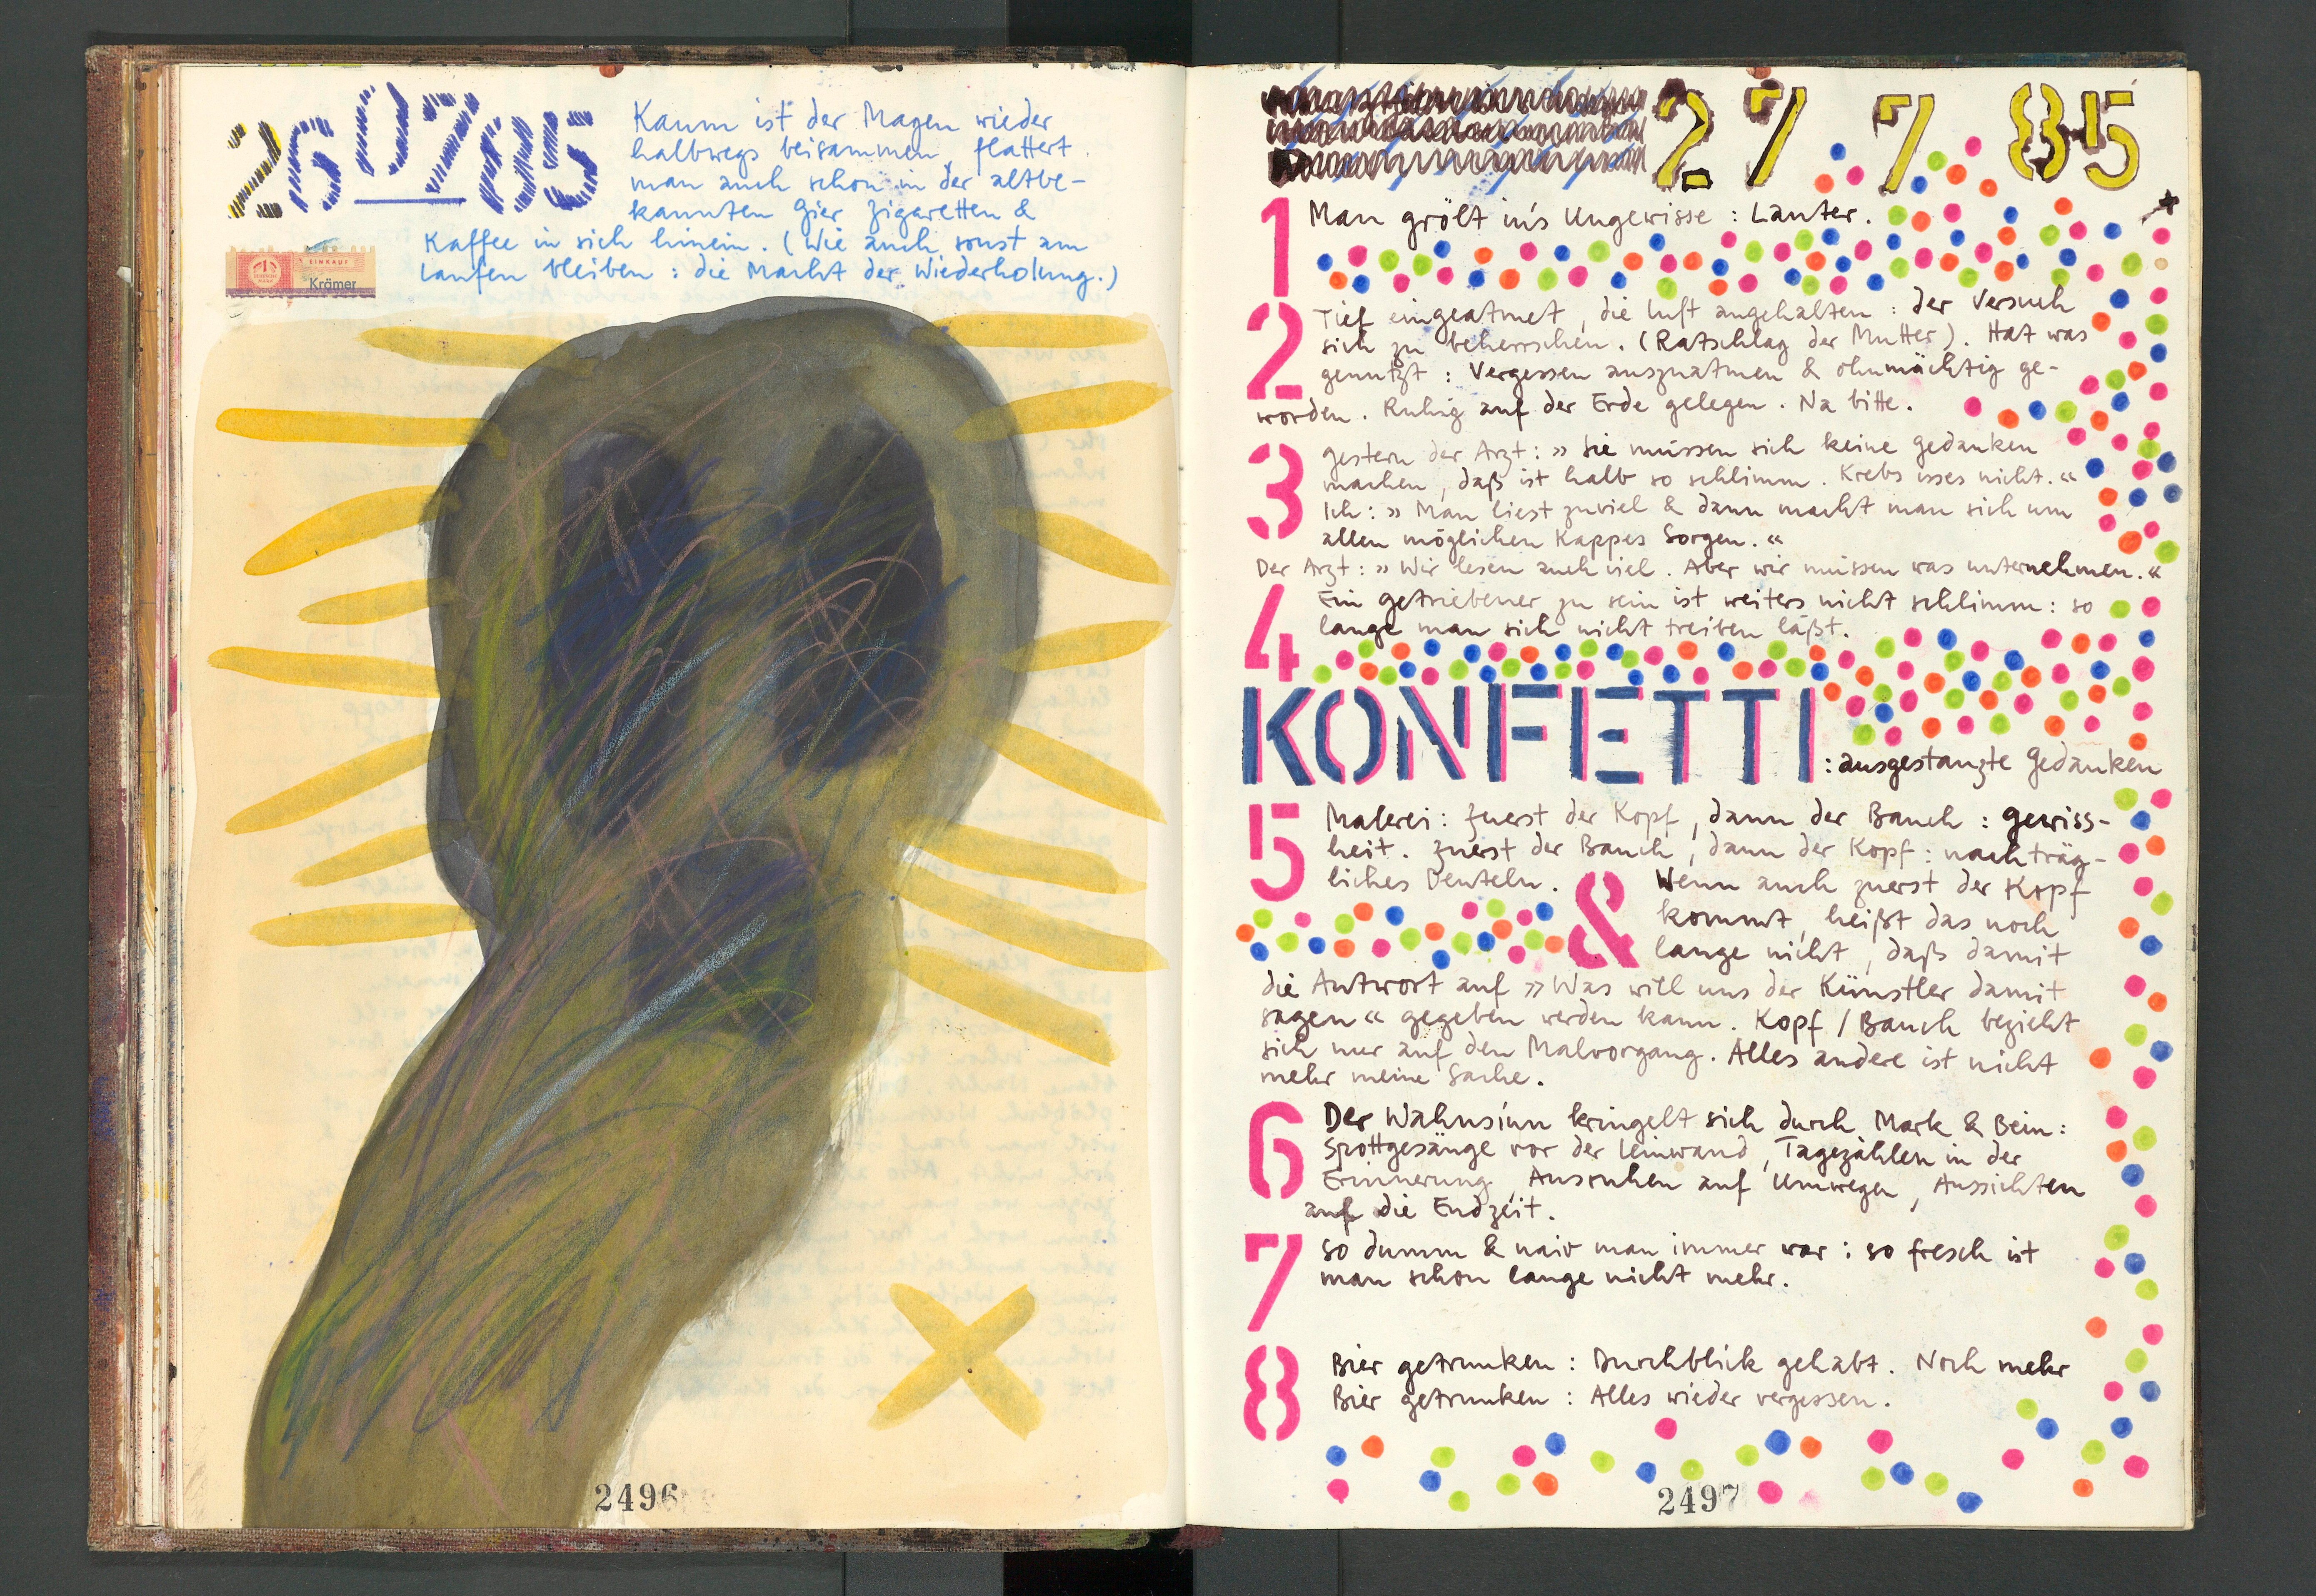 26 07 85
Kaum ist der Magen wieder
halbwegs beisammen, flattert
man auch schon in der altbe-
kannten Gier Zigaretten &
Kaffee in sich hinein. (Wie auch sonst am
Laufen bleiben : die Macht der Wiederholung.)
EINKAUF
Krämer
2496
27 7 85
1 Man grölt in's Ungewisse : Lauter.
2 Tief eingeatmet, die Luft angehalten : der Versuch
sich zu beherrschen. (Ratschlag der Mutter). Hat was
genutzt : Vergessen auszuatmen & ohnmächtig ge-
worden. Ruhig auf der Erde gelegen. Na bitte.
3 Gestern der Arzt : » Sie müssen sich keine Gedanken
machen, daß ist halb so schlimm. Krebs isses nicht. «
Ich : » Man liest zuviel & dann macht man sich um
allen möglichen Kappes Sorgen. «
Der Arzt : » Wir lesen auch viel. Aber wir müssen was unternehmen. «
4 Ein Getriebener zu sein ist weiters nicht schlimm : so
lange man sich nicht treiben läßt.
KONFETTI : ausgestanzte Gedanken
5 Malerei : Zuerst der Kopf, dann der Bauch : Gewiss-
heit. Zuerst der Bauch, dann der Kopf : nachträg-
liches Deuteln.
& Wenn auch zuerst der Kopf
kommt, heißt das noch
lange nicht, daß damit
die Antwort auf » Was will uns der Künstler damit
sagen « gegeben werden kann. Kopf / Bauch bezieht
sich nur auf den Malvorgang. Alles andere ist nicht
mehr meine Sache.
6 Der Wahnsinn kringelt sich durch Mark & Bein :
Spottgesänge vor der Leinwand, Tagezählen in der
Erinnerung, Ausruhen auf Umwegen, Aussichten
auf die Endzeit.
7 So dumm & naiv man immer war : so fresch ist
man schon lange nicht mehr.
8 Bier getrunken : Durchblick gehabt. Noch mehr
Bier getrunken : Alles wieder vergessen.
2497